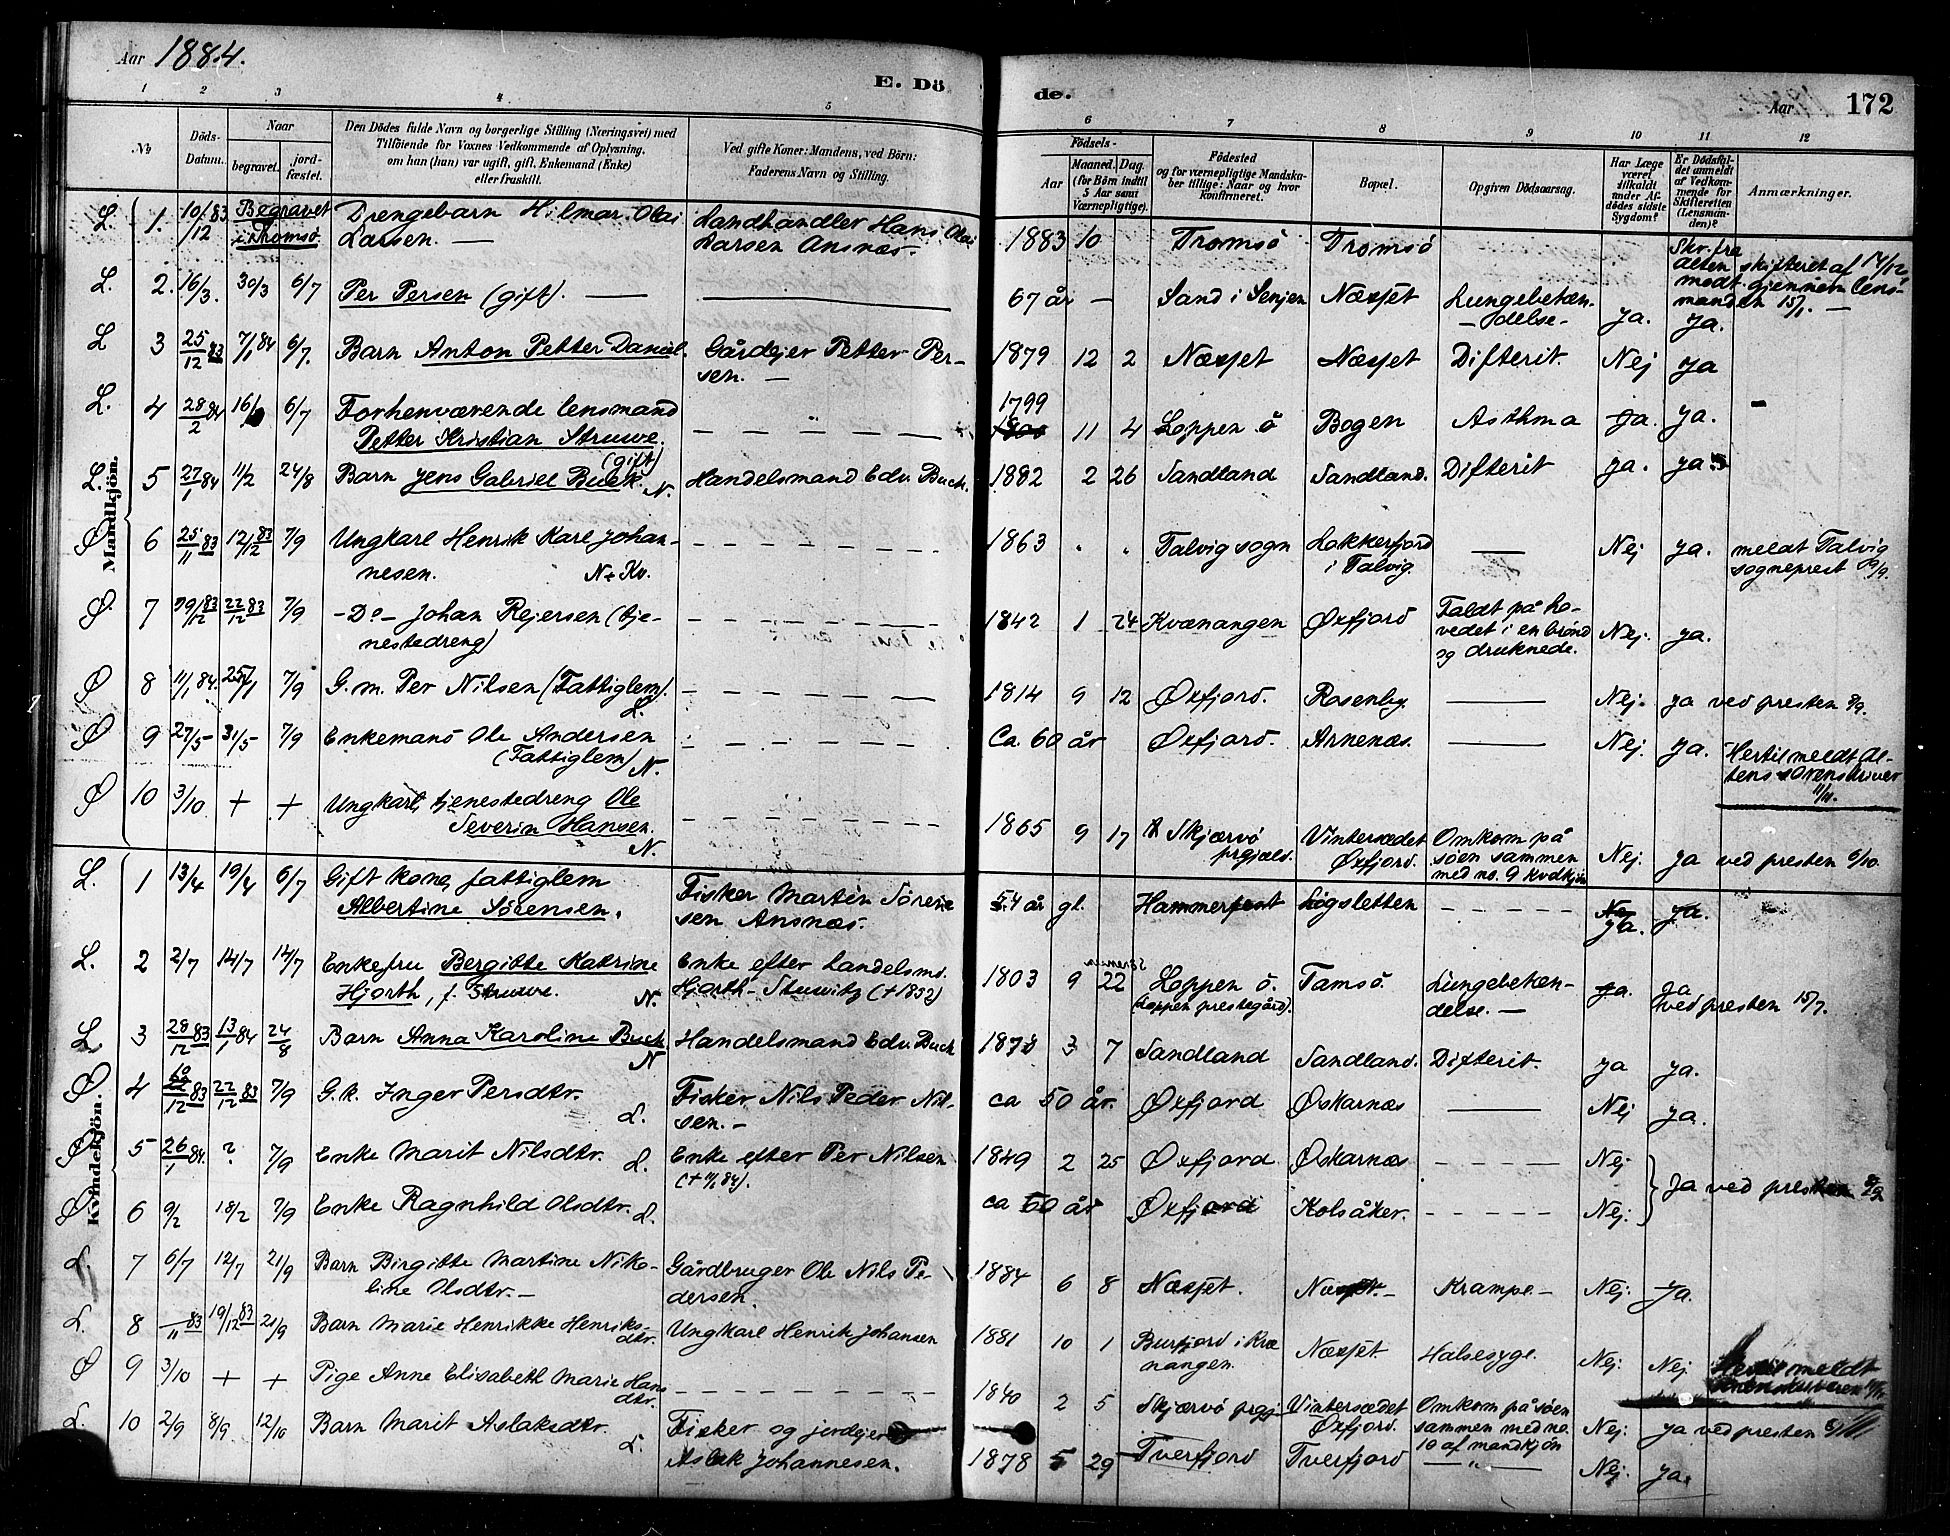 Aar 1884.
E. Dö
de.
Aar
172
1 2 3 4 5 6 7 8 9 10 11 12
No
Döds-Datum.
Naar
begravet.
jord-fæstet.
Den Dödes fulde Navn og borgerlige Stilling (Næringsvei) med
Tilföiende for Voxnes Vedkommende af Oplysning,
om han (hun) var ugift, gift, Enkemand (Enke)
eller fraskilt.
Ved gifte Koner: Mandens, ved Börn:
Faderens Navn og Stilling.
Födsels-
Aar
Maaned. Dag.
(for Börn indtil
5 Aar samt
Værnepligtige).
Födested
og for værnepligtige Mandska-
ber tillige: Naar og hvor
konfirmeret.
Bopæl.
Opgiven Dödsaarsag.
Har Læge
været
tilkaldt
under Af-
dödes sidste
Sygdom?
Er Dödsfal-
det anmeldt
af Vedkom-
mende for
Skifteretten
(Lensman-
den)?
Anmærkninger.
Mandkjön.
L. 1. 10/12 83 Begravet i Tromsö Drengebarn Hilmar Olai Larsen. — Landhandler Hans Olai Larsen Ansnæs. 1883 10 Tromsö Tromsö Skr. fra Alten skifteret af 14/12 modt. gjennem lensmanden 15/1. —
L. 2. 16/3. 30/3 6/7 Per Persen (gift). — 67 år — Sand i Senjen Næsjet Lungebetændelse- Ja. Ja.
L 3 25/12 83 7/1 84 6/7. Barn Anton Petter Daniel. Gårdejer Petter Persen. — 1879 12 2 Næsjet Næsjet Difterit. Nej Ja
L. 4 28/2 84 16/ 6/7 Forhenværende lensmand Petter Kristian Struwe. (gift) 1799 11 4 Loppen ö Bogen Asthma Ja. Ja.
L. 5 27/1 84 11/2 24/8 Barn Jens Gabriel Buck. N. Handelsmand Edv. Buck. 1882 2 26 Sandland Sandland. Difterit Ja. Ja
Ø 6 25/11 83 12/12 83 7/9 Ungkarl Henrik Karl Johannesen. N+Kv. 1863 " " Talvig sogn Lokkerfjord i Talvig. — Nej Ja. meldt Talvig sogneprest 29/9.
Ø. 7 /12 83 22/12 83 7/9 -Do- Johan Rejersen (tjenestedreng) 1842 1 24 Kvænangen Øxfjord Faldt på hovedet i en brønd og druknede. Nej. Ja.
Ø 8 11/1 84. 25/1 7/9 G.m. Per Nilsen (Fattiglem). L. 1814 9 12 Øxfjord. Rosenby. — Nej. Ja ved presten 8/9.
Ø 9 27/5 31/5 7/9 Enkemand Ole Andersen (Fattiglem) N. Ca. 60 år Øxfjord. Arnenæs. — Nej. Ja. Hertil meldt Altens sorenskriver 11/11.
Ø 10 3/10 + + Ungkarl, tjenestedreng Ole Severin Hansen. N. 1865 9 17 Skjærvö prgjæld. Vintersædet Øxfjord. Omkom på søen sammen med no. 9 kvdkjön Nej. Ja ved presten 6/10.
Kvindekjön.
L. 1 13/4 19/4 6/7 Gift kone, fattiglem Albertine Sörensen. Fisker Martin Sörensen Ansnæs. 54 år gl. Hammerfest Lögsletten Nej Ja. Ja.
L. 2 2/7 14/7 14/7 Enkefru Bergitte Katrine Hjorth, f. Struwe. N. Enke efter Landelsmd. Hjorth-Stuwitz (+1852) 1803 9 22 Loppen ö. (Loppen prestegård). Tamsö. Lungebetændelse. — Ja. Ja ved presten 15/7.
L. 3 28/12 83 13/1 84 24/8 Barn Anna Karoline Buck N Handelsmand Edv. Buck 1878 3 7 Sandland Sandland. Difterit. Ja Ja.
Ø 4 /12 83 22/12 83 7/9 G.k. Inger Persdtr. L. Fisker Nils Peder Nilsen. — ca 50 år. Øxfjord Øskarnæs — Nej Ja.
Ø 5 26/1 84. ? 7/9 Enke Marit Nilsdtr. L. Enke efter Per Nilsen (+ 11/1 84). 1849 2 25 Øxfjord Øskarnæs Nej Ja ved presten 8/9
Ø 6 9/2 18/2 7/9 Enke Ragnhild Olsdtr. L. ca 60 år Øxfjord Kolsåker. Nej.
L. 7 6/7 12/7 21/9 Barn Birgitte Martine Nikoline Olsdtr. — Gårdbruger Ole Nils Pedersen. 1884 6 8 Næsjet. Næsjet. Krampe. — Nej. Ja.
L. 8 —/11 83 19/12 83 21/9 Barn Marie Henrikke Henriksdtr. Ungkarl Henrik Johansen 1881 10 1 Burfjord i Kvænangen. Næsjet. Halsesyge. Nej. Nej. Hertil meldt
Ø 9 3/10 + + Pige Anne Elisabeth Marie Hansdtr. 1840 2 5 Skjærvö prgj. Vintersædet Øxfjord. Omkom på søen sammen med no. 10 af mandkjön Nej. Ja ved presten
L. 10 2/9 8/9. 12/10 Barn Marit Aslaksdtr. L. Fisker og jordejer Aslak Johannesen. 1878 5 29 Tverfjord Tverfjord — " — Nej. Ja.